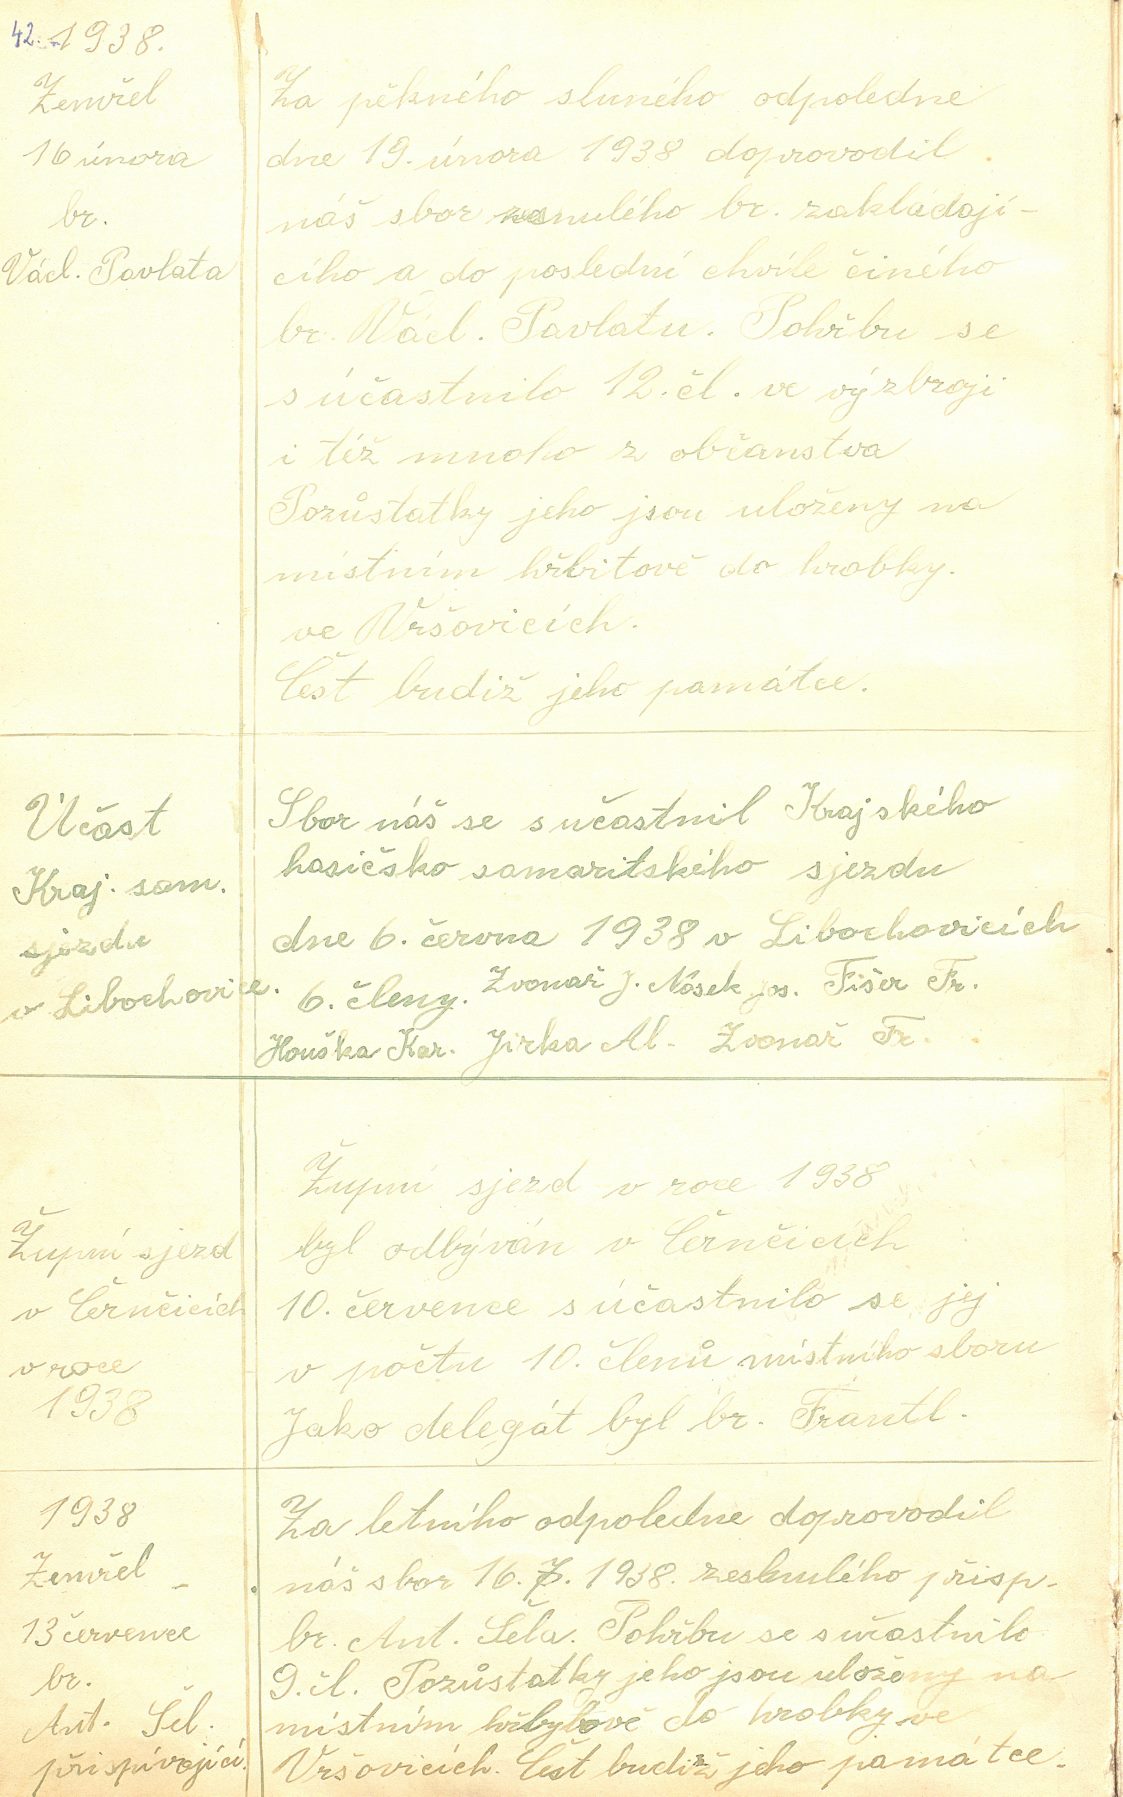 42. 1938.
Zemřel
16 února
br.
Václ. Pavlata
Za pěkného sluného odpoledne
dne 19. února 1938 doprovodil
náš sbor zesnulého br. zakládají-
cího a do poslední chvíle činého
br. Václ. Pavlatu. Pohřbu se
súčastnilo 12. čl. ve výzbroji
i též mnoho z občanstva
Pozůstatky jeho jsou uloženy na
místním hřbitově do hrobky.
ve Vršovicích.
Čest budiž jeho památce.
Účast
Kraj. sam.
sjezdu
v Libochovice.
Sbor náš se sučastnil Krajského
hasičsko samaritského sjezdu
dne 6. června 1938 v Libochovicích
6. členy. Zvonař J. Nôsek Jos. Fišer Fr.
Houška Kar. Jirka Al. Zvonař Fr.
Župní sjezd
v Černčicích
v roce
1938
Župní sjezd v roce 1938
byl odbýván v Černčicích
10. července súčastnilo se jej
v počtu 10. členů místního sboru
Jako delegát byl br. Frantl.
1938
Zemřel
13 července
br.
Ant. Šel.
přispívající.
Za letního odpoledne doprovodil
náš sbor 16. 7. 1938. zesnulého přisp.
br. Ant. Šela. Pohřbu se sučastnilo
9. čl. Pozůstatky jeho jsou uloženy na
místním hřbytově do hrobky ve
Vršovicích. Čest budiž jeho památce.